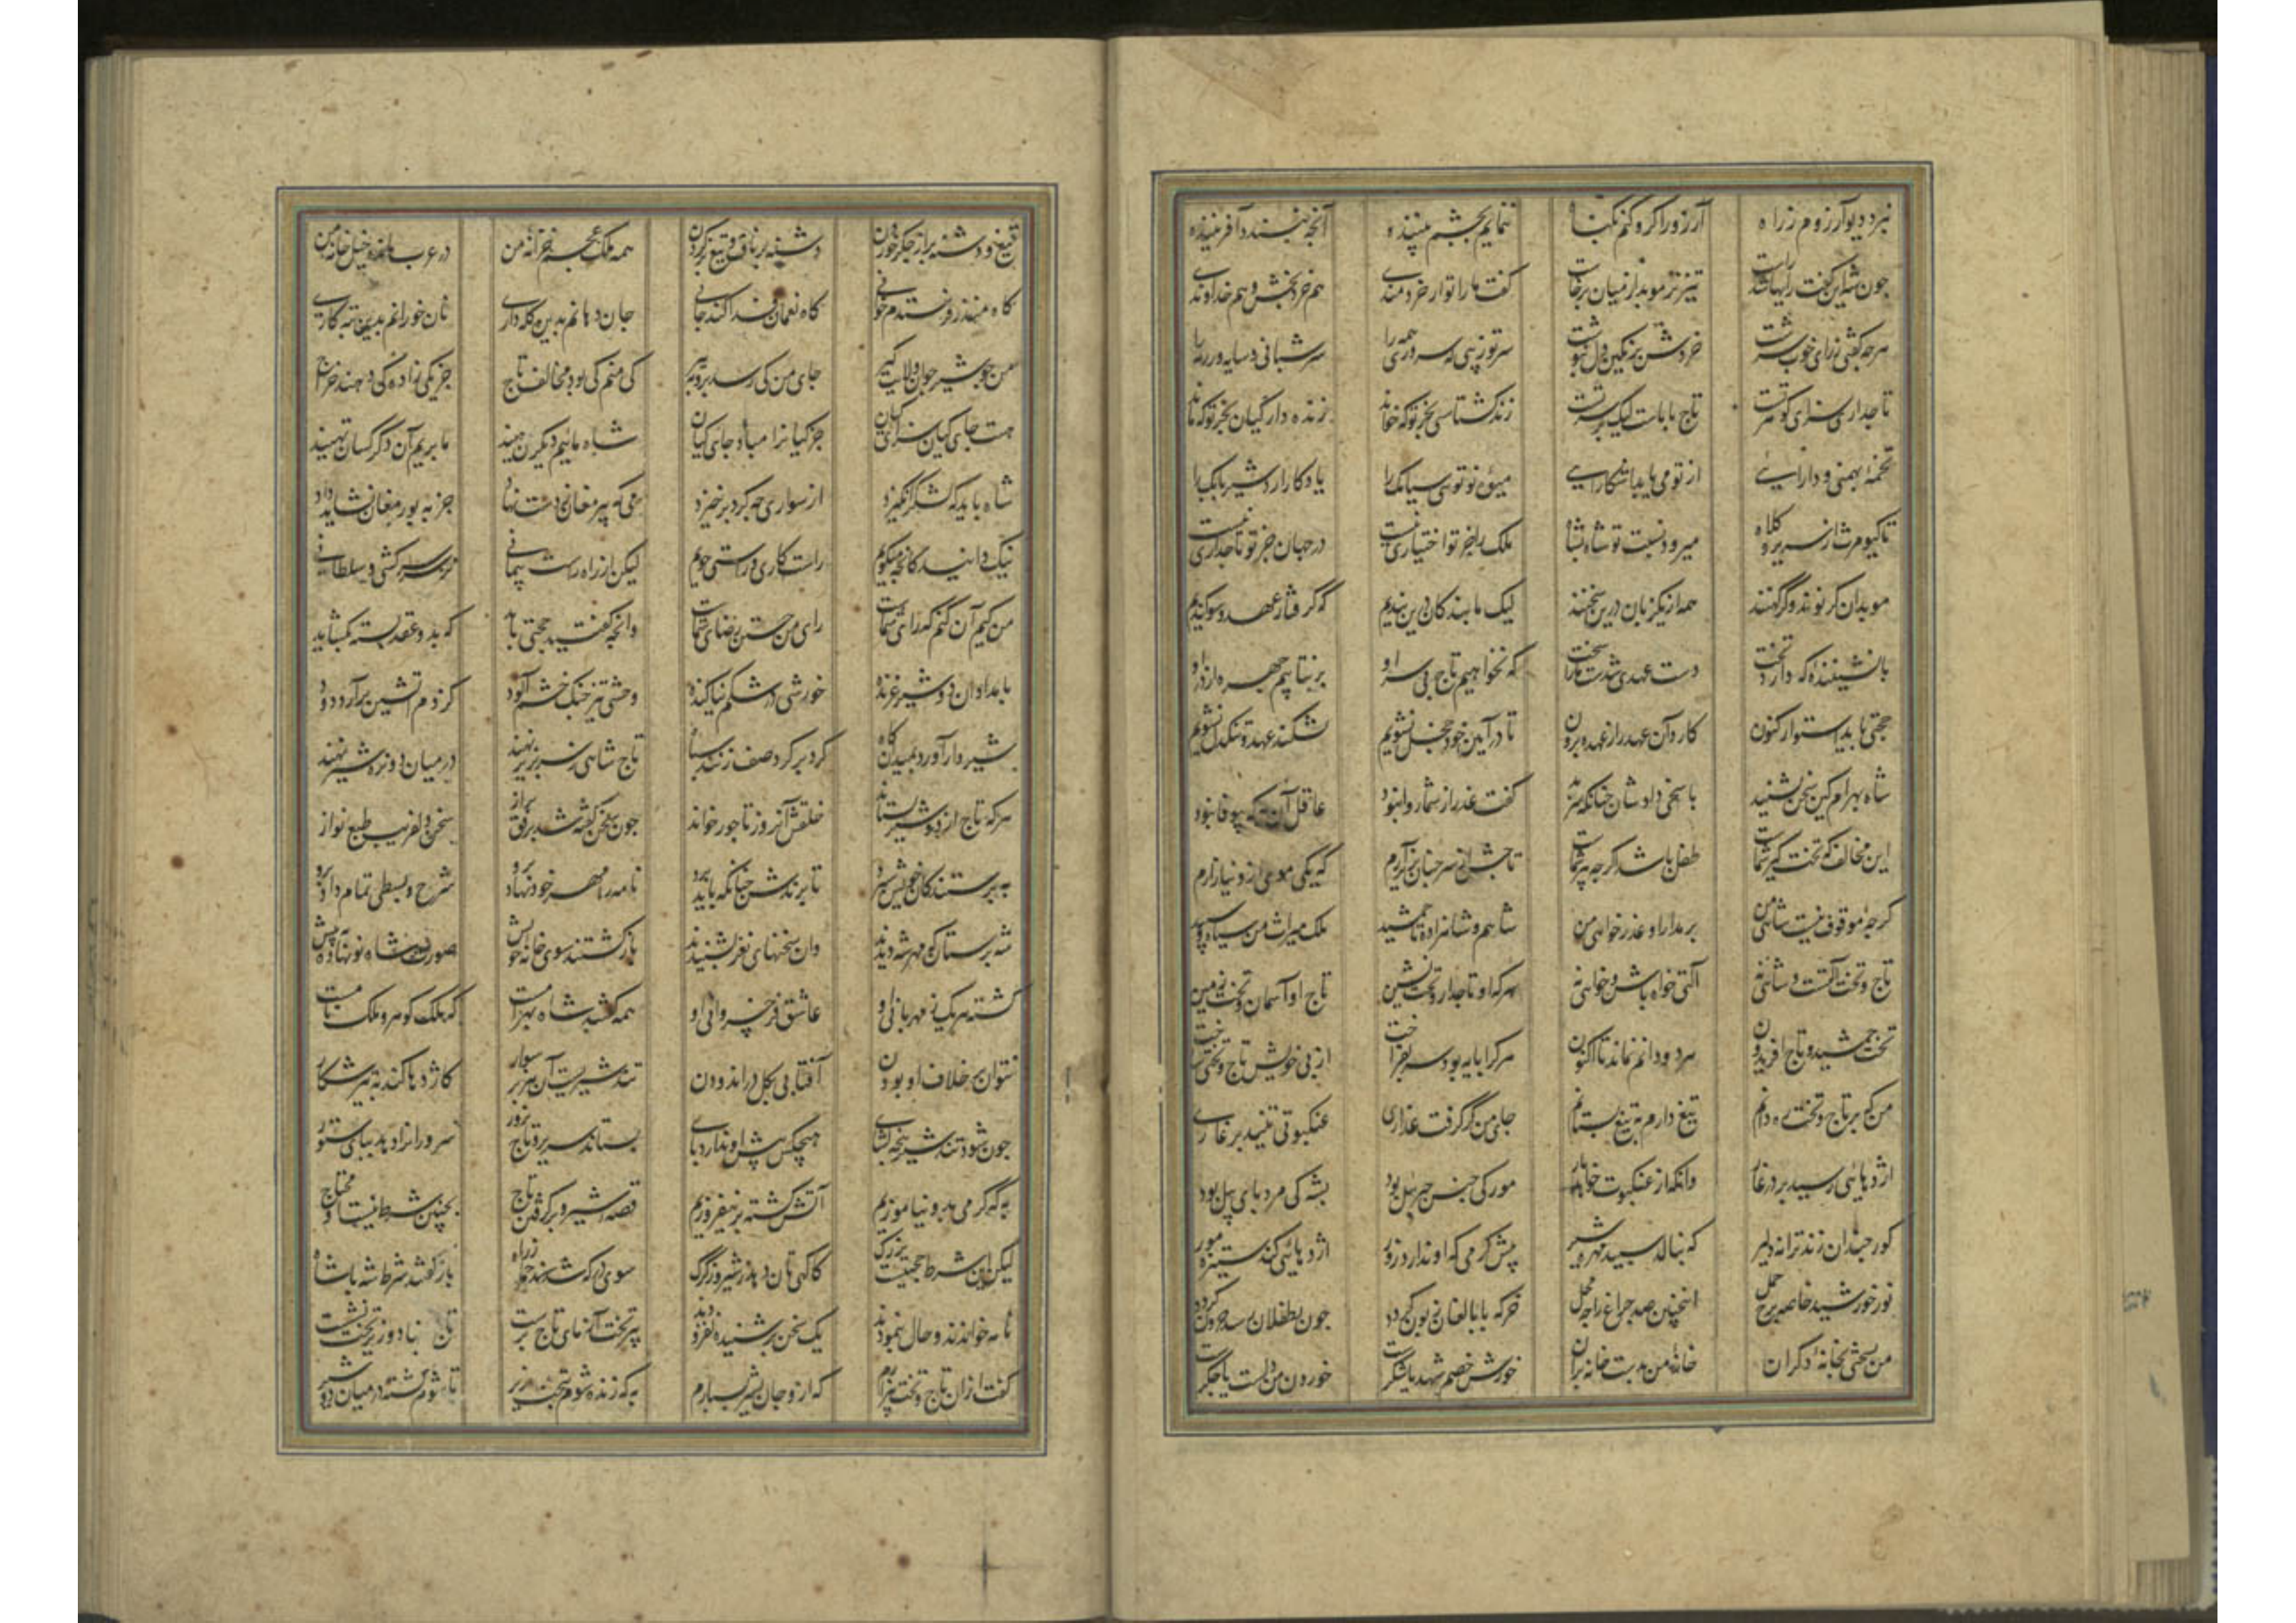 نبرد دیو آرزوم ز راه آرزو را کرو کنم بکناه ننمایم بچشم بیننده آنچه نپسندد آفریننده
چون شه این گفت و رایها شد راست تیزتر موبد از میان برخاست گفت ما را تو از خردمندی هم خرد بخش و هم خداوندی
هرچه گفتی ز رای خوب سرشت خردش بر نگین دل بنوشت سر تو زیبی که سروری همه را سر شبانی و سایه ور رمه را
تاجداری سزای گوهر تست تاج با ماست لیک بر سر تست زند گشتاسبی بجز تو که خواند زنده دار کیان بجز تو که ماند
تخمه بهمنی و دارایی از تو می یابد آشکارایی میوه نو توی سیامک را یادگار اردشیر بابک را
تا کیومرث از سریر و کلاه میرود نسبت تو شاه بشاه ملک را جز تو اختیاری نیست در جهان جز تو تاجداری نیست
موبدان گر نوند و گر کهنند همه از یکزبان درین سخنند لیک ما بندگان درین بندیم که گرفتار عهد و سوگندیم
با نشیننده که دارد تخت دست عهدی شدست ما را سخت که نخواهیم تاج بی سر او بر نتابیم چهره از در او
حجتی باید استوار کنون کارد آن عهد را ز عهده برون تا در آیین خود خجل نشویم نشکند عهد و تنکدل نشویم
شاه بهرام کین سخن بشنید پاسخی دادشان چنانکه سزید گفت عذر از شما روا نبود عاقل آن به که بیوفا نبود
این مخالف که تخت گیر شماست طفل باشد اگر چه پیر شماست تاجش از سر چنان بزیر آرم که یکی موی ازو نیازارم
گرچه موقوف نیست شاهی من بر مدارا و عذر خواهی من شاهم و شاه زاده تا جمشید ملک میراث من سیاه و سپید
تاج و تخت آلتست و شاهی نه آلتی خواه باش و خواهی نه هر که او تاجدار و تخت نشین تاج او آسمان و تخت زمین
تخت جمشید و تاج افریدون سرد و دانم نماند تا اکنون هر که را مایه بود سر بفراخت از پی خویش تاج و تختی ساخت
من که بر تاج و تخت ره دانم تیغ دارم به تیغ بستانم جای من گر گرفت غداری عنکبوتی تنید بر غاری
اژدهایی رسید بر در غار وانکه از عنکبوت خواهد بار مور کی جنس جبرئیل بود پشه کی مرد پای پیل بود
گور چندان زند ترانه دلیر که ننالد سپید مهره شیر پیش گرمی که او ندارد زور اژدهایی کند ستیزه مور
نور خورشید خاصه برج حمل اینچنین صد چراغ را چه محل خر که با بالغان زبون گردد چون بطفلان رسد حرون گردد
من بسختی بخانه دگران خانه من بدست خانه بران خورش خصم شهد یا شکر است خوردن من دلست یا جگر است
تیغ و دشنه به از جگر خوردن دشنه بر ناف و تیغ بر گردن همه ملک عجم خزانه من در عرب مانده خیل خانه من
گاه منذر فرستدم خوانی گاه نعمان فدا کند جانی جان دهانم بدین کله داری نان خورانم بدین تبه کاری
من چو شیر جوان ولایت گیر جای من کی رسد بروبه پیر کی منم کی بود مخالف تاج جز یکی زاده کی دهند خراج
هست جای کیان سزای کیان جز کیانرا مباد جای کیان شاه ماییم دیگران رهیند ما پریم آن دگر کسان تهیند
شاه باید که لشکر انگیزد از سواری چه گرد برخیزد می که پیر مغان ز دست نهاد جز به پور مغان نشاید داد
نیک دانید کانچه میگویم راست کاری و راستی جویم لیکن از راه راست پیمانی نز سر سرکشی و سلطانی
من کیم آن کنم که رای شماست رای من جستن رضای شماست وانچه گفتید حجتی باید که بدو عقد بسته بگشاید
بامدادان دو شیر غرنده خورشی در شکم نیاکنده وحشی تیز چنگ خشم آلود کز دم آتشین برآرد دود
شیردار آورد بمیدانگاه گرد بر گرد صف زنند سپاه تاج شاهی ز سر بزیر نهند در میان دو نره شیر نهند
هر که تاج از دو شیر بستاند خلقش آن روز تاجور خواند چون سخن گفته شد برفق و براز سخن دلفریب طبع نواز
به پرستندگان خویش سپرد تا برندش چنانکه باید برد نامه را مهر خود نهاد برو شرح و بسطی تمام داد برو
شه پرستان که مهر شه دیدند وان سخنهای نغز بشنیدند بازگشتند سوی خانه خویش صورت شاه نو نهاده به پیش
گشته هر یک ز مهربانی او عاشق فر خسروانی او همه گفتند شاه بهرامست که ملک گوهر و ملک نامست
نتوان بر خلاف او بودن آفتابی بگل در اندودن تند شیریست آن هزبر سوار کاژدها را کند به تیر شکار
چون شود تند شیر پنجه گشای هیچکس پیش او ندارد پای بستاند سریر و تاج بزور سروران را در آرد بپای ستور
به که گرمی برو نیاموزیم آتش کشته بر نیفروزیم قصه شیر و برگرفتن تاج بچنین شرط نیست او محتاج
لیکن این شرط حجتیست بزرگ کاگهی مان دهد ز شیر و ز گرگ سوی درگه شدند جمله ز راه باز گفتند شرط شاه باشاه
نامه خواندند و حال بنمودند یک سخن بر شنیده نفزودند پیر تخت آزمای تاج پرست تاج بنهاد و زیر تخت نشست
گفت ازان تاج و تخت بیزارم که ازو جان بشیر بسپارم به که زنده شوم ز تخت بزیر تا شوم کشته در میان دو شیر